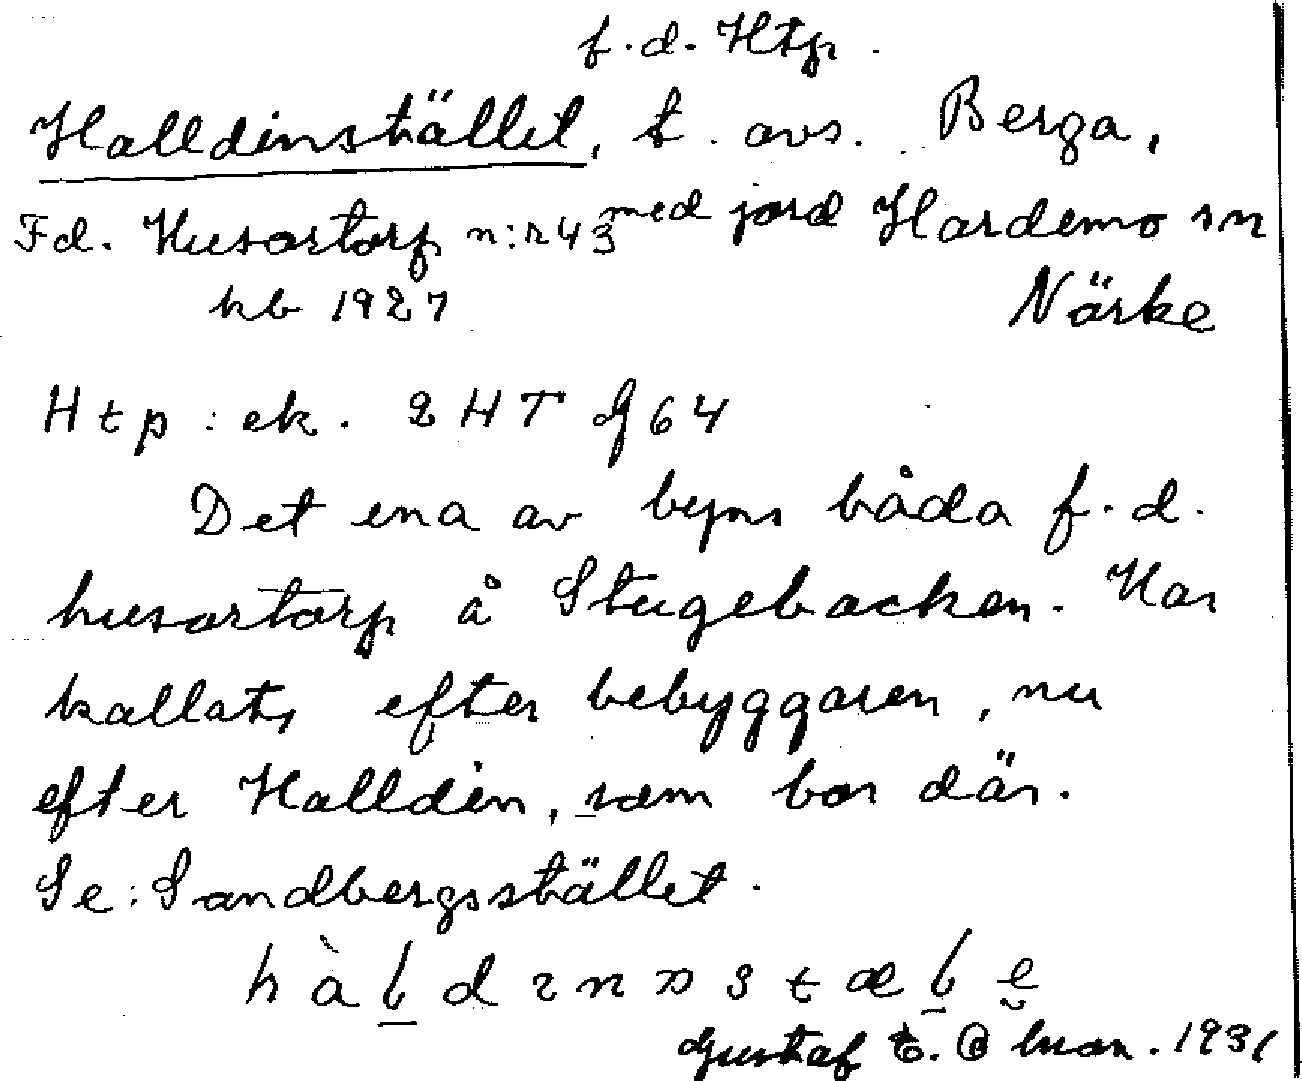 f.d. Htp.
Halldinstället, t. avs. Berga,
Fd. Husartorp n:r 43 med jord Hardemo sn
kb 1927 Närke
Htp: ek. 2 HT Af 64
Det ena av byns båda f.d.
husartorp å Stugebacken. Har
kallats efter bebyggaren, nu
efter Halldin, som bor där.
Se: Sandbergsstället.
Gustaf 1931